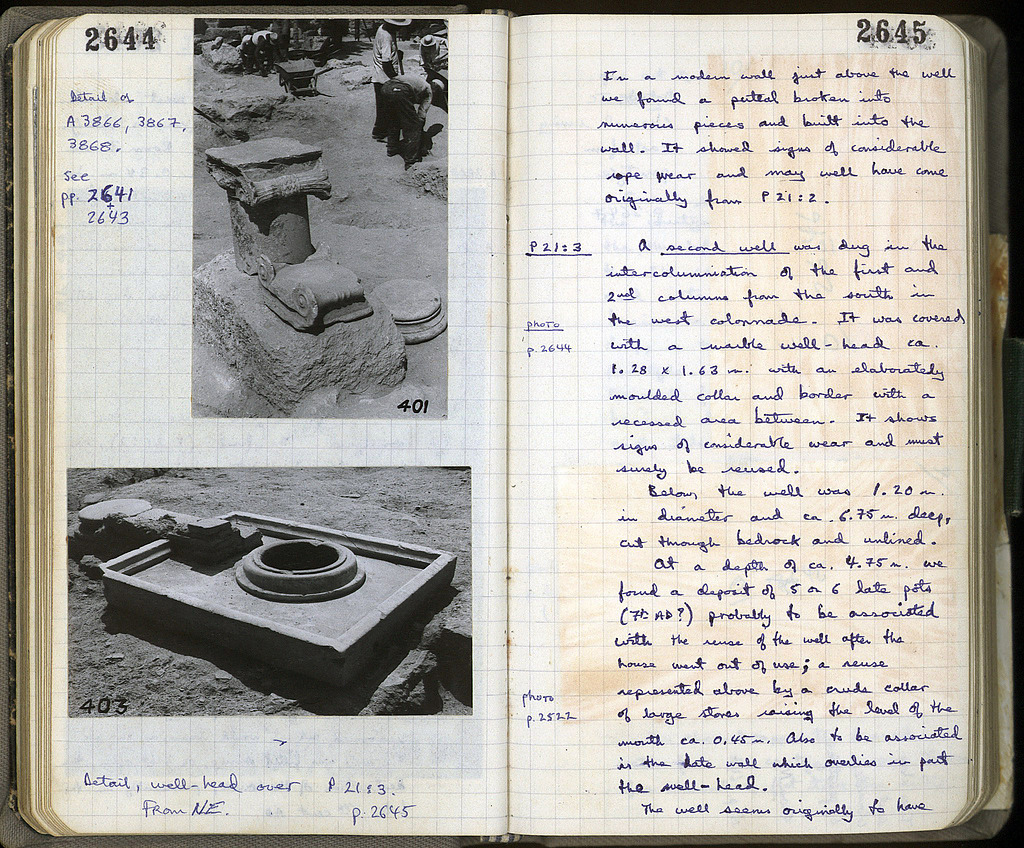 2644
Detail of
A 3866, 3867,
3868.
See
pp. 2641
+
2643
401
403
Detail, well-head over P 21:3.
From NE. p. 2645
2645
In a modern wall just above the well
we found a puteal broken into
numerous pieces and built into the
wall. It showed signs of considerable
rope wear and may well have come
originally from P 21:2.
P 21:3
A second well was dug in the
intercolumniation of the first and
2nd columns from the south in
photo
the west colonnade. It was covered
p. 2644
with a marble well-head ca.
1.28 x 1.63 m. with an elaborately
moulded collar and border with a
recessed area between. It shows
signs of considerable wear and must
surely be reused.
Below, the well was 1.20 m.
in diameter and ca. 6.75 m. deep,
cut through bedrock and unlined.
At a depth of ca. 4.75 m. we
found a deposit of 5 or 6 late pots
(7th AD?) probably to be associated
with the reuse of the well after the
house went out of use; a reuse
photo
represented above by a crude collar
p. 2522
of large stones raising the level of the
mouth ca. 0.45 m. Also to be associated
is the late wall which overlies in part
the well-head.
The well seems originally to have